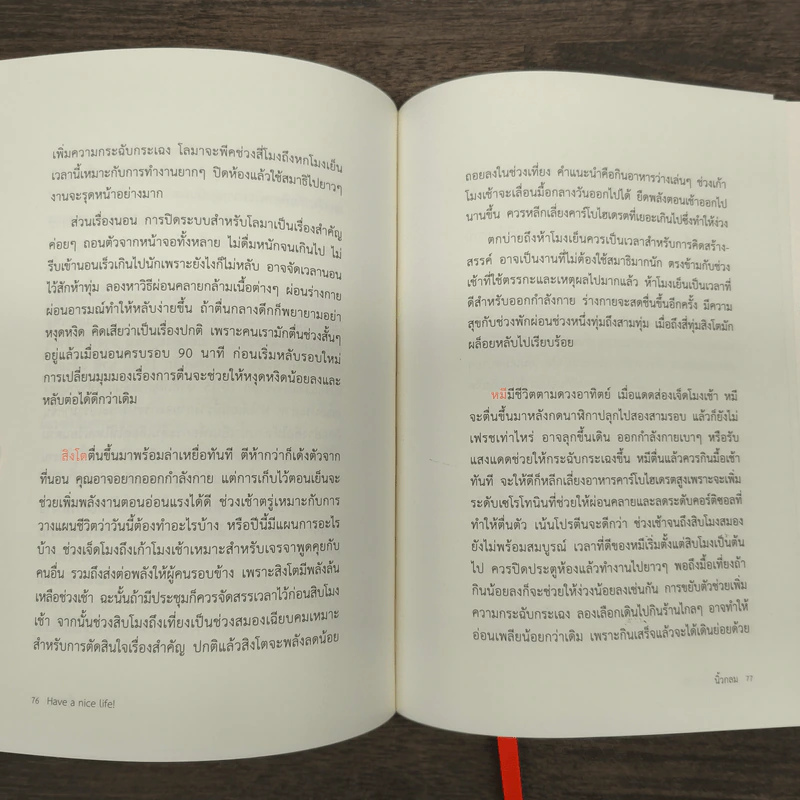 เพิ่มความกระฉับกระเฉง โลมาจะพีคช่วงสี่โมงถึงหกโมงเย็น
เวลานี้เหมาะกับการทำงานยากๆ ปิดห้องแล้วใช้สมาธิไปยาวๆ
งานจะรุดหน้าอย่างมาก
ส่วนเรื่องนอน การปิดระบบสำหรับโลมาเป็นเรื่องสำคัญ
ค่อยๆ ถอนตัวจากหน้าจอทั้งหลาย ไม่ดื่มหนักจนเกินไป ไม่
รีบเข้านอนเร็วเกินไปนักเพราะยังไงก็ไม่หลับ อาจจัดเวลานอน
ไว้สักห้าทุ่ม ลองหาวิธีผ่อนคลายกล้ามเนื้อต่างๆ ผ่อนร่างกาย
ผ่อนอารมณ์ทำให้หลับง่ายขึ้น ถ้าตื่นกลางดึกก็พยายามอย่า
หงุดหงิด คิดเสียว่าเป็นเรื่องปกติ เพราะคนเรามักตื่นช่วงสั้นๆ
อยู่แล้วเมื่อนอนครบรอบ 90 นาที ก่อนเริ่มหลับรอบใหม่
การเปลี่ยนมุมมองเรื่องการตื่นจะช่วยให้หงุดหงิดน้อยลงและ
หลับต่อได้ดีกว่าเดิม
สิงโตตื่นขึ้นมาพร้อมล่าเหยื่อทันที ตีห้ากว่าก็เด้งตัวจาก
ที่นอน คุณอาจอยากออกกำลังกาย แต่การเก็บไว้ตอนเย็นจะ
ช่วยเพิ่มพลังงานตอนอ่อนแรงได้ดี ช่วงเช้าตรู่เหมาะกับการ
วางแผนชีวิตว่าวันนี้ต้องทำอะไรบ้าง หรือปีนี้มีแผนการอะไร
บ้าง ช่วงเจ็ดโมงถึงเก้าโมงเช้าเหมาะสำหรับเจรจาพูดคุยกับ
คนอื่น รวมถึงส่งต่อพลังให้ผู้คนรอบข้าง เพราะสิงโตมีพลังล้น
เหลือช่วงเช้า ฉะนั้นถ้ามีประชุมก็ควรจัดสรรเวลาไว้ก่อนสิบโมง
เช้า จากนั้นช่วงสิบโมงถึงเที่ยงเป็นช่วงสมองเฉียบคมเหมาะ
สำหรับการตัดสินใจเรื่องสำคัญ ปกติแล้วสิงโตจะพลังลดน้อย
76 Have a nice life!
ถอยลงในช่วงเที่ยง คำแนะนำคือกินอาหารว่างเล่นๆ ช่วงเก้า
โมงเช้าจะเลื่อนมื้อกลางวันออกไปได้ ยืดพลังตอนเช้าออกไป
นานขึ้น ควรหลีกเลี่ยงคาร์โบไฮเดรตที่เยอะเกินไปซึ่งทำให้ง่วง
ตกบ่ายถึงห้าโมงเย็นควรเป็นเวลาสำหรับการคิดสร้าง-
สรรค์ อาจเป็นงานที่ไม่ต้องใช้สมาธิมากนัก ตรงข้ามกับช่วง
เช้าที่ใช้ตรรกะและเหตุผลไปมากแล้ว ห้าโมงเย็นเป็นเวลาที่
ดีสำหรับออกกำลังกาย ร่างกายจะสดชื่นขึ้นอีกครั้ง มีความ
สุขกับช่วงพักผ่อนช่วงหนึ่งทุ่มถึงสามทุ่ม เมื่อถึงสี่ทุ่มสิงโตมัก
ผล็อยหลับไปเรียบร้อย
หมีมีชีวิตตามดวงอาทิตย์ เมื่อแดดส่องเจ็ดโมงเช้า หมี
จะตื่นขึ้นมาหลังกดนาฬิกาปลุกไปสองสามรอบ แล้วก็ยังไม่
เฟรชเท่าไหร่ อาจลุกขึ้นเดิน ออกกำลังกายเบาๆ หรือรับ
แสงแดดช่วยให้กระฉับกระเฉงขึ้น หมีตื่นแล้วควรกินมื้อเช้า
ทันที จะให้ดีก็หลีกเลี่ยงอาหารคาร์โบไฮเดรตสูงเพราะจะเพิ่ม
ระดับเซโรโทนินที่ช่วยให้ผ่อนคลายและลดระดับคอร์ติซอลที่
ทำให้ตื่นตัว เน้นโปรตีนจะดีกว่า ช่วงเช้าจนถึงสิบโมงสมอง
ยังไม่พร้อมสมบูรณ์ เวลาที่ดีของหมีเริ่มตั้งแต่สิบโมงเป็นต้น
ไป ควรปิดประตูห้องแล้วทำงานไปยาวๆ พอถึงมื้อเที่ยงถ้า
กินน้อยลงก็จะช่วยให้ง่วงน้อยลงเช่นกัน การขยับตัวช่วยเพิ่ม
ความกระฉับกระเฉง ลองเลือกเดินไปกินร้านไกลๆ อาจทำให้
อ่อนเพลียน้อยกว่าเดิม เพราะกินเสร็จแล้วจะได้เดินย่อยด้วย
นิ้วกลม 77